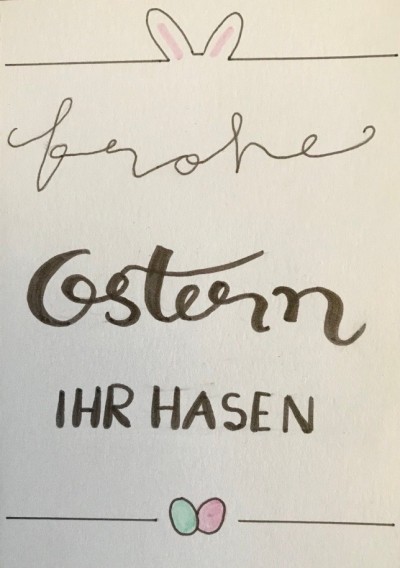 frohe
Ostern
IHR HASEN